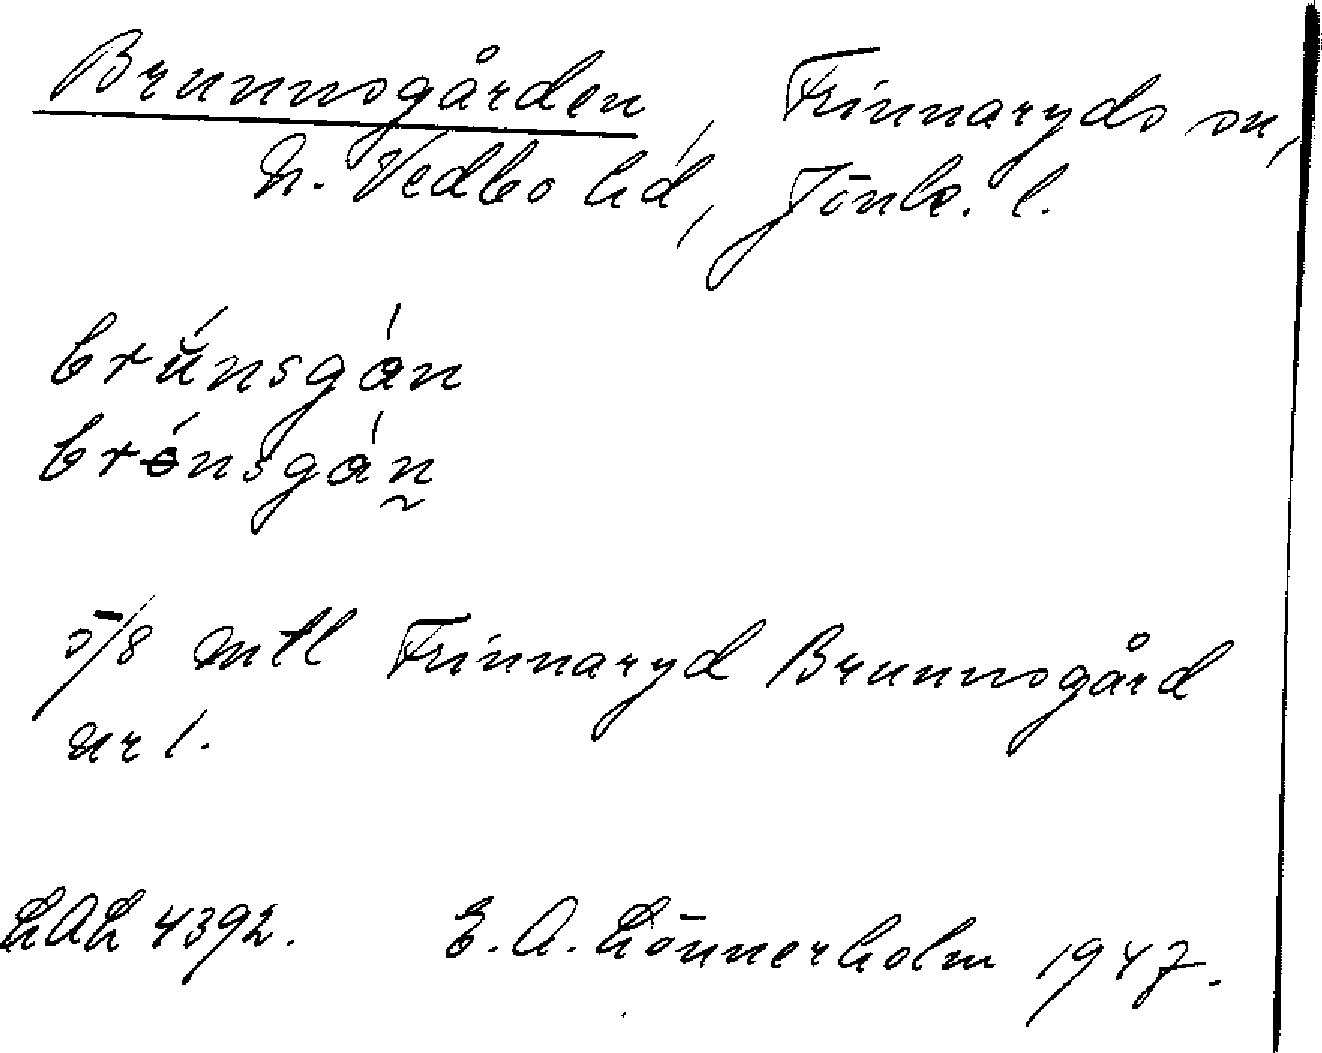 Brunnsgården, Frinnaryds sn,
N. Vedbo hd, Jönk. l.
brúnsgán
brónsgán
5/8 mtl Frinnaryd Brunnsgård
nr 1.
LAL 4392. E. A. Lönnerholm 1947.